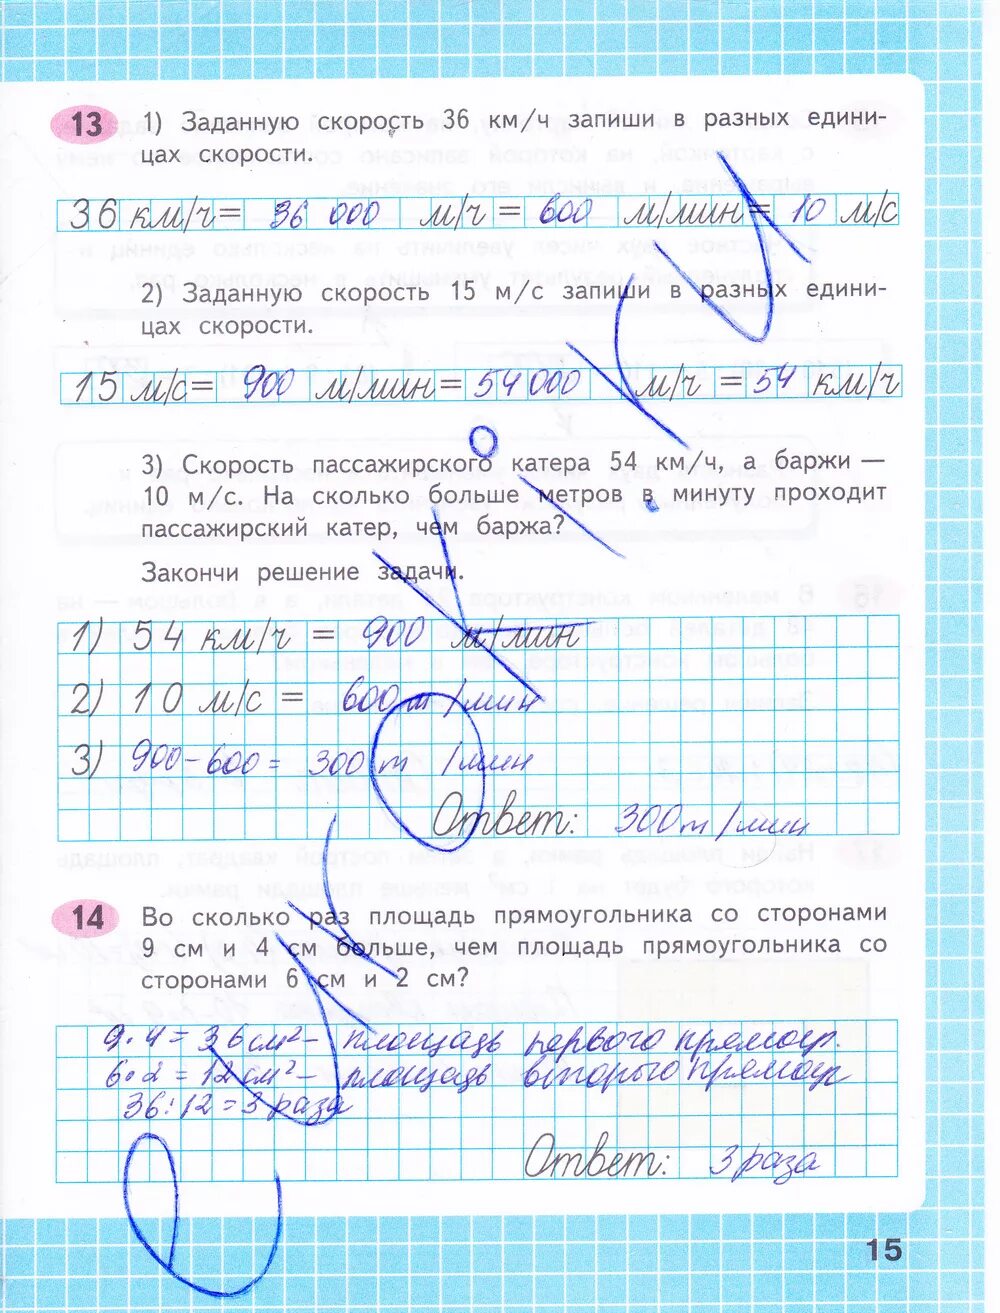 13 1) Заданную скорость 36 км/ч запиши в разных едини-
цах скорости.
36 км/ч = 36 000 м/ч = 600 м/мин = 10 м/с
2) Заданную скорость 15 м/с запиши в разных едини-
цах скорости.
15 м/с = 900 м/мин = 54000 м/ч = 54 км/ч
3) Скорость пассажирского катера 54 км/ч, а баржи —
10 м/с. На сколько больше метров в минуту проходит
пассажирский катер, чем баржа?
Закончи решение задачи.
1) 54 км/ч = 900 м/мин
2) 10 м/с = 600 m/мин
3) 900-600 = 300 m /мин
Ответ: 300 m/мин
14 Во сколько раз площадь прямоугольника со сторонами
9 см и 4 см больше, чем площадь прямоугольника со
сторонами 6 см и 2 см?
9·4 = 36 см² - площадь первого прямоуг.
6·2 = 12 см² - площадь второго прямоуг
36:12 = 3 раза
Ответ: 3 раза
15